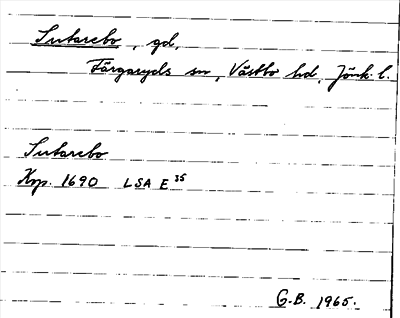 Sutarebo, gd,
Färgaryds sn, Västbo hd, Jönk. l.
Sutarebo
Krp. 1690 LSA E 35
G.B. 1965.